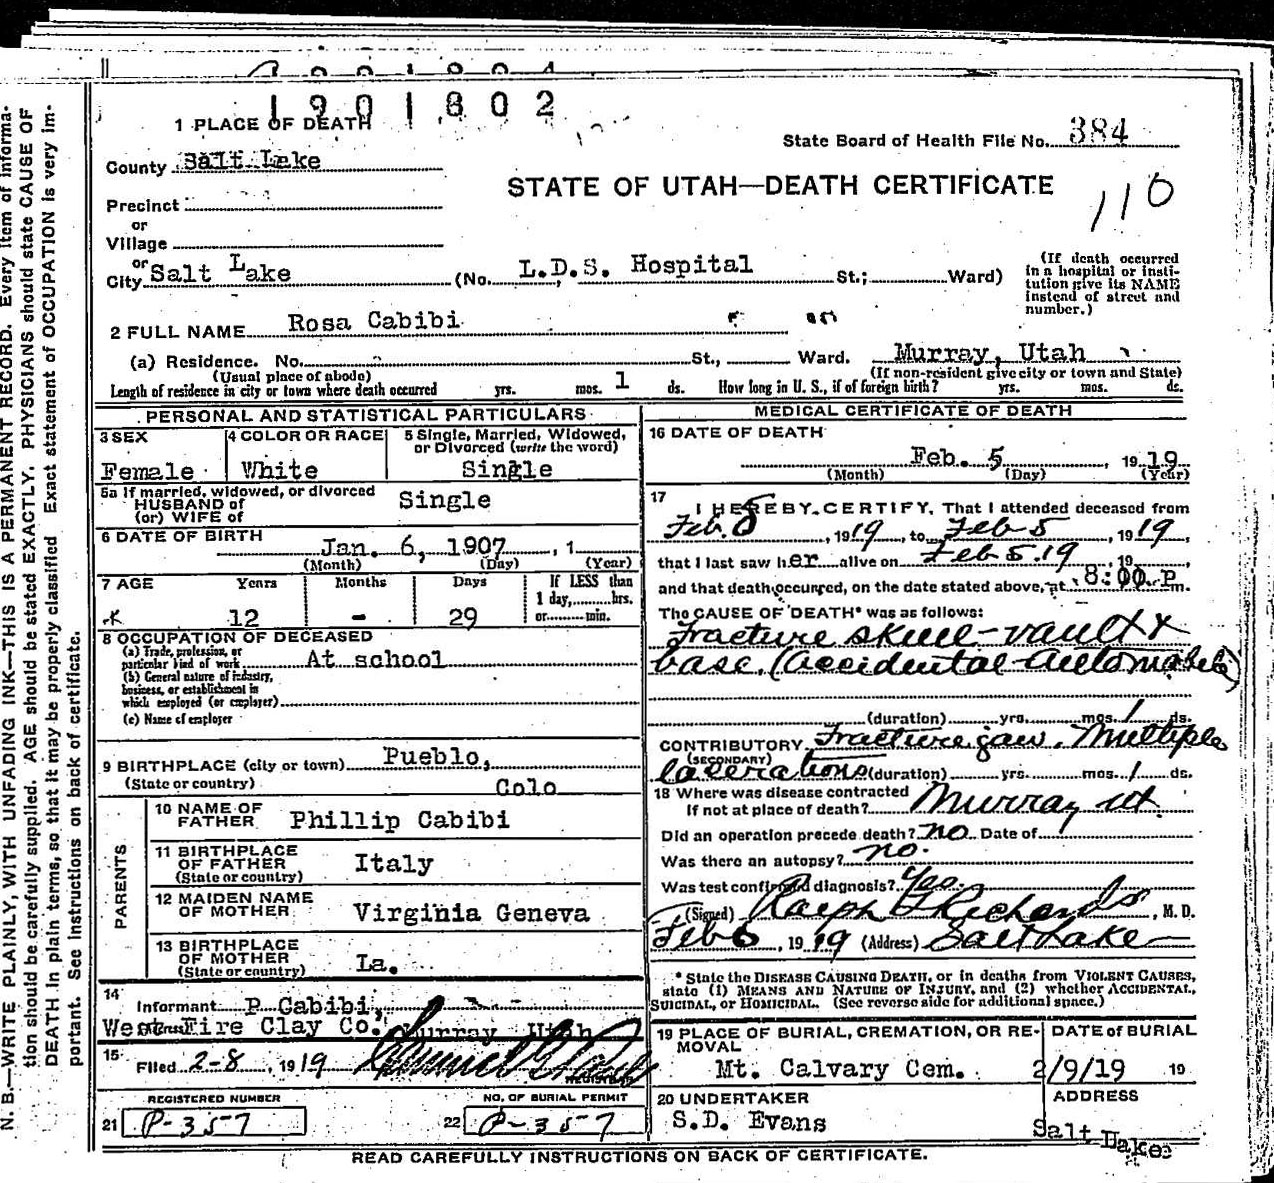 1901802
1 PLACE OF DEATH
State Board of Health File No. 384
County Salt Lake
STATE OF UTAH—DEATH CERTIFICATE
110
Precinct
or
Village
or
City Salt Lake (No. L.D.S. Hospital St.; Ward)
(If death occurred in a hospital or institution give its NAME instead of street and number.)
2 FULL NAME Rosa Cabibi
(a) Residence. No. St., Ward. Murray, Utah
(Usual place of abode) (If non-resident give city or town and State)
Length of residence in city or town where death occurred yrs. mos. 1 ds. How long in U. S., if of foreign birth? yrs. mos. ds.
PERSONAL AND STATISTICAL PARTICULARS
3 SEX
Female
4 COLOR OR RACE
White
5 Single, Married, Widowed, or Divorced (write the word)
Single
5a If married, widowed, or divorced
HUSBAND of
(or) WIFE of
Single
6 DATE OF BIRTH
Jan. 6, 1907, 1
(Month) (Day) (Year)
7 AGE Years Months Days If LESS than
1 day, hrs.
or min.
12 - 29
8 OCCUPATION OF DECEASED
(a) Trade, profession, or
particular kind of work At school
(b) General nature of industry,
business, or establishment in
which employed (or employer)
(c) Name of employer
9 BIRTHPLACE (city or town) Pueblo,
(State or country) Colo
PARENTS
10 NAME OF FATHER Phillip Cabibi
11 BIRTHPLACE OF FATHER (State or country) Italy
12 MAIDEN NAME OF MOTHER Virginia Geneva
13 BIRTHPLACE OF MOTHER (State or country) La.
14
Informant P Cabibi,
Fire Clay Co. Murray Utah
15 Filed 2-8, 1919
REGISTRAR
REGISTERED NUMBER
21 P-357
NO. OF BURIAL PERMIT
22 P-357
MEDICAL CERTIFICATE OF DEATH
16 DATE OF DEATH
Feb. 5, 1919
(Month) (Day) (Year)
17 I HEREBY CERTIFY, That I attended deceased from
Feb. 5, 1919, to Feb 5, 1919,
that I last saw her alive on Feb 5. 19, 19
and that death occurred, on the date stated above, at 8:00 P m.
The CAUSE OF DEATH* was as follows:
Fracture skull - vault &
base. (Accidental - Automobile)
(duration) yrs. mos. 1 ds.
CONTRIBUTORY Fracture jaw. Multiple
(SECONDARY)
lacerations (duration) yrs. mos. 1 ds.
18 Where was disease contracted
If not at place of death? Murray ut
Did an operation precede death? no Date of
Was there an autopsy? no.
Was test confirmed diagnosis? Yes.
(Signed) Ralph T Richards, M. D.
Feb 6, 1919 (Address) Salt Lake
* State the DISEASE CAUSING DEATH, or in deaths from VIOLENT CAUSES,
state (1) MEANS AND NATURE OF INJURY, and (2) whether ACCIDENTAL,
SUICIDAL, or HOMICIDAL. (See reverse side for additional space.)
19 PLACE OF BURIAL, CREMATION, OR REMOVAL
Mt. Calvary Cem.
DATE of BURIAL
2/9/19 19
20 UNDERTAKER
S.D. Evans
ADDRESS
Salt Lake
READ CAREFULLY INSTRUCTIONS ON BACK OF CERTIFICATE.
N. B.—WRITE PLAINLY, WITH UNFADING INK—THIS IS A PERMANENT RECORD. Every item of informa-
tion should be carefully supplied. AGE should be stated EXACTLY. PHYSICIANS should state CAUSE OF
DEATH in plain terms, so that it may be properly classified. Exact statement of OCCUPATION is very im-
portant. See instructions on back of certificate.